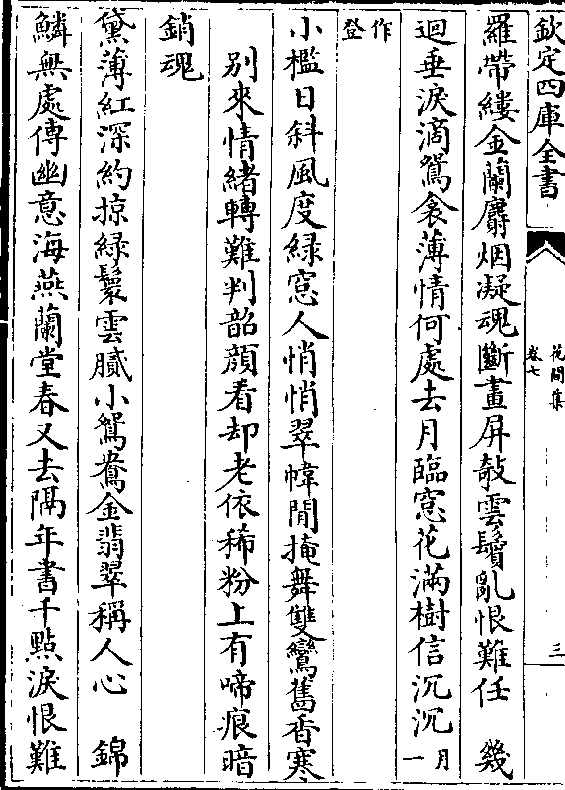 欽定四庫全書
花間集
卷七
三
羅帶縷金蘭麝烟凝魂斷畫屏欹雲鬢亂恨難任　幾
迴垂淚滴鴛衾薄情何處去月臨窓花滿樹信沉沉月一
作登
小檻日斜風度緑窓人悄悄翠幃閒掩舞雙鸞舊香寒
別來情緒轉難判韶顔看却老依稀粉上有啼痕暗
銷魂
黛薄紅深約掠緑鬟雲膩小鴛鴦金翡翠稱人心　錦
鱗無處傳幽意海燕蘭堂春又去隔年書千點淚恨難